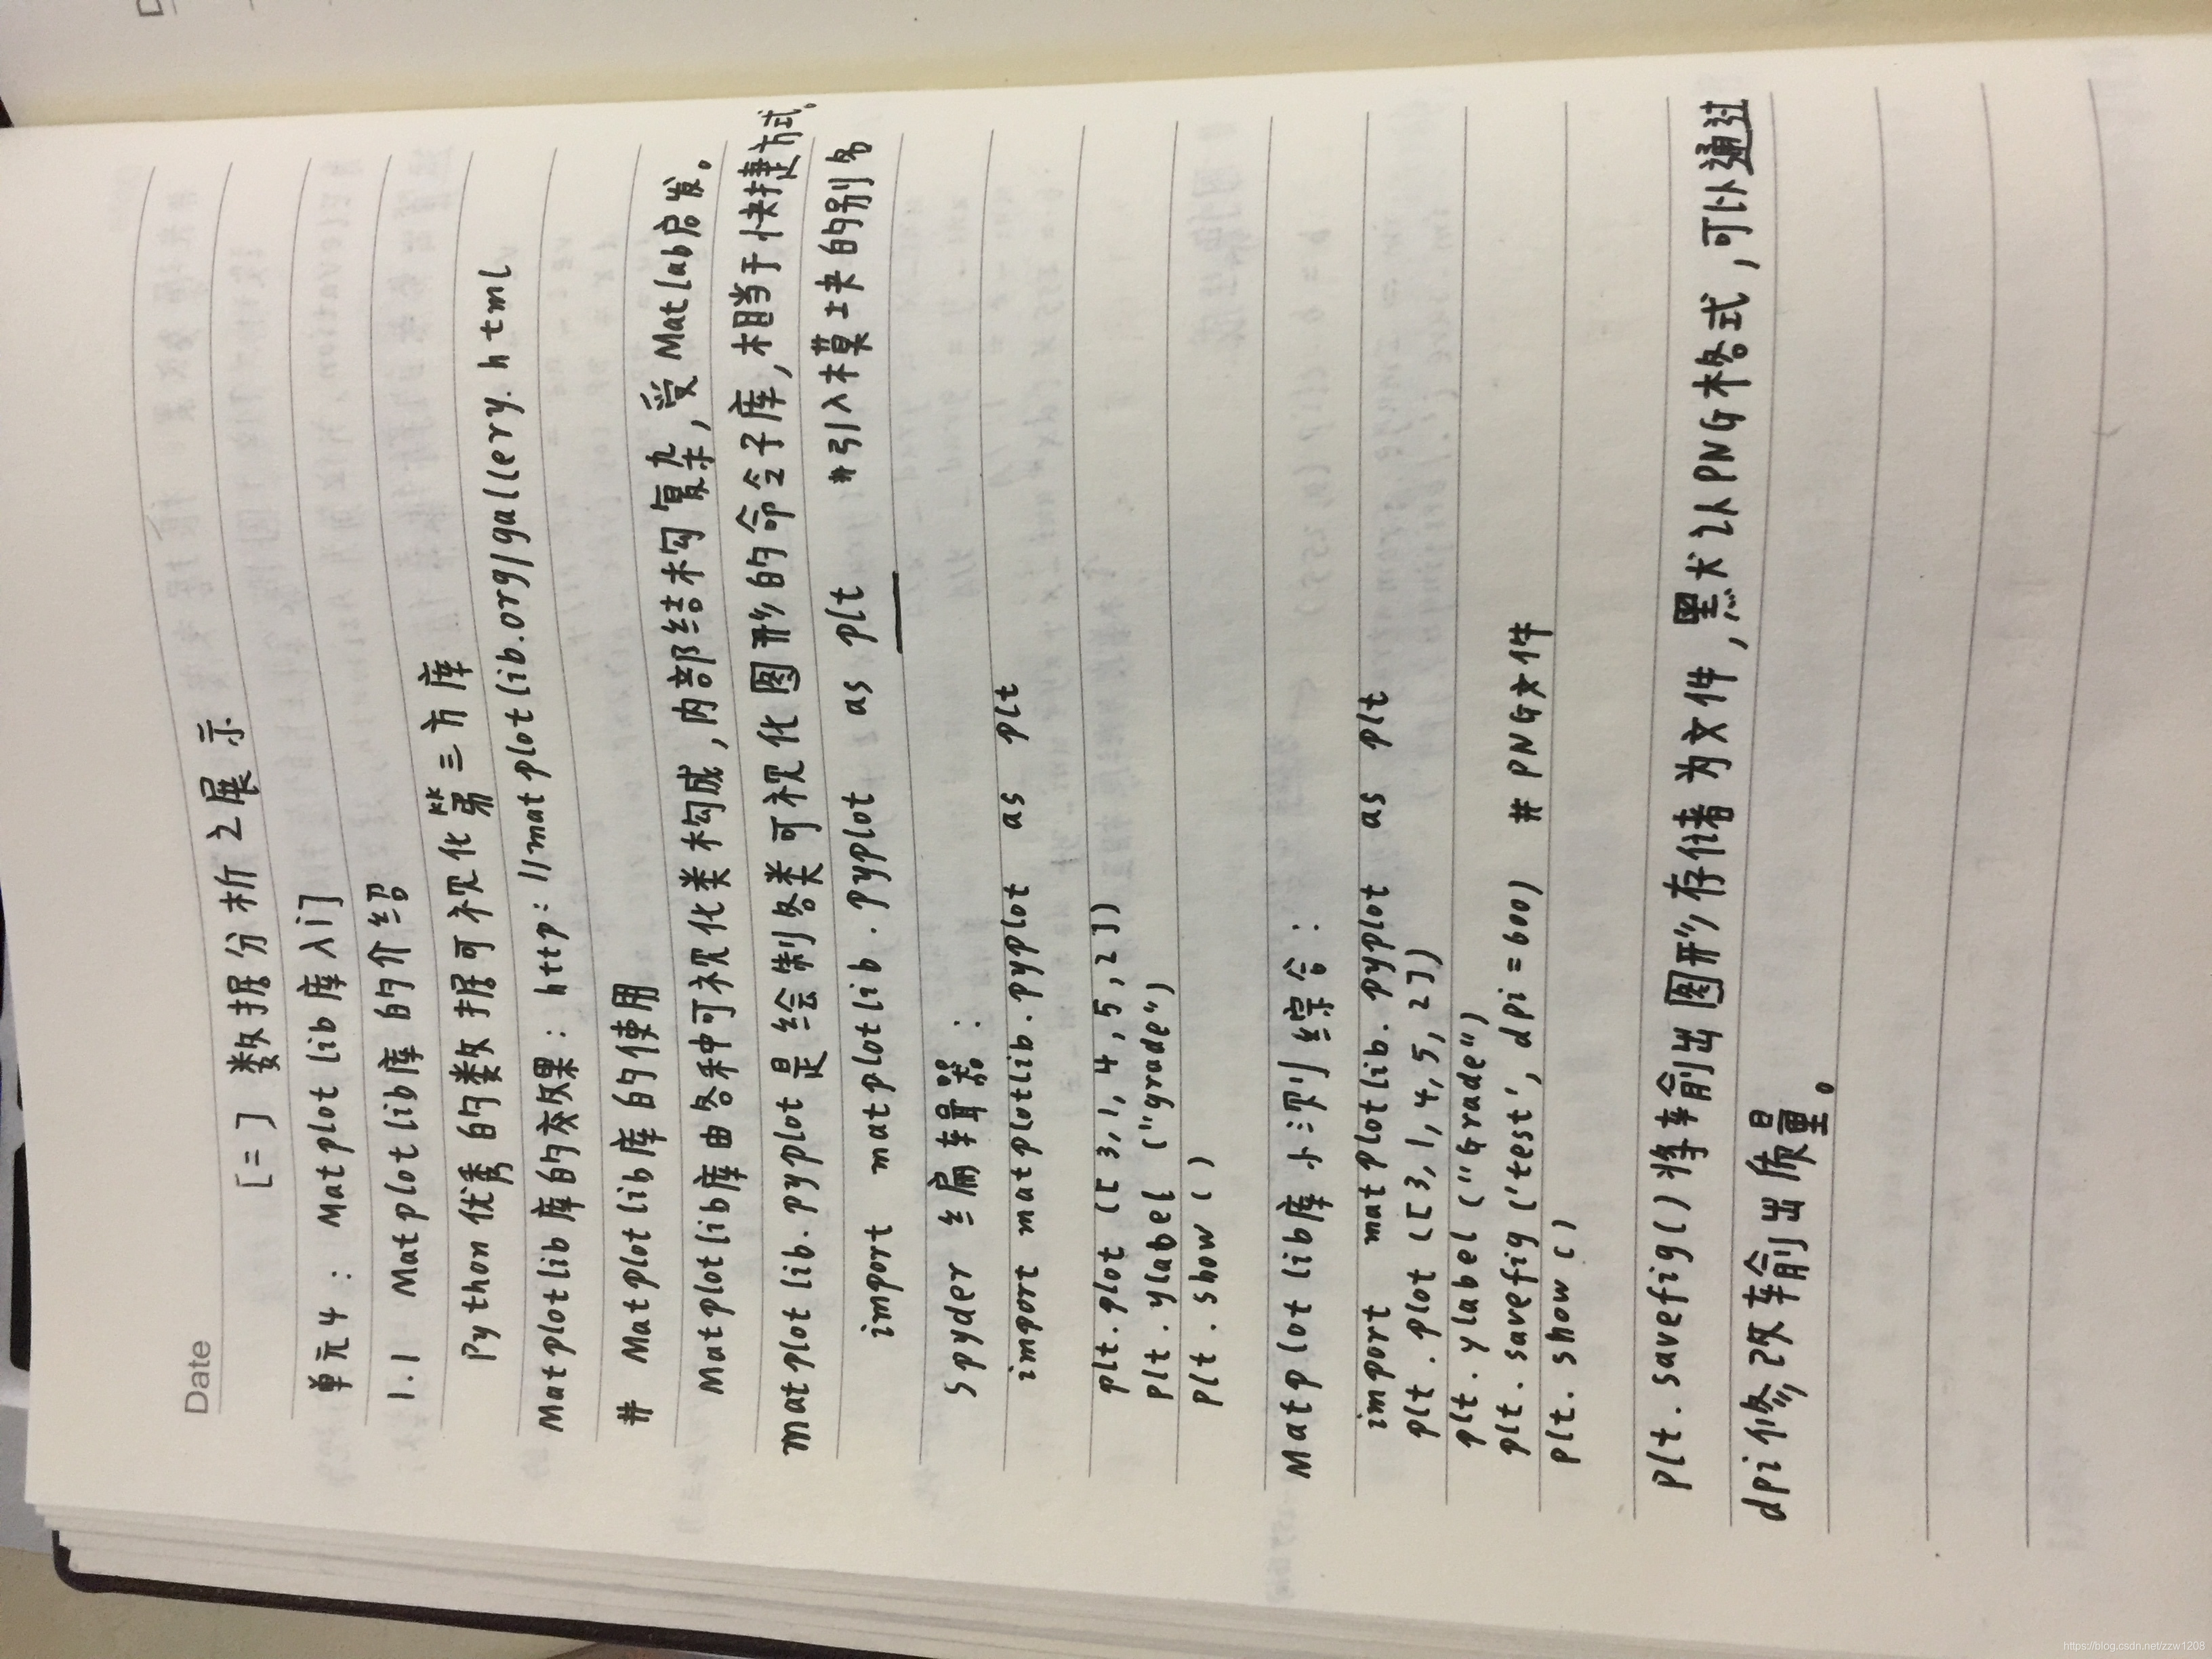 Date
[二] 数据分析之展示
单元4： Matplotlib库入门
1.1 Matplotlib库的介绍
Python优秀的数据可视化第三方库
Matplotlib库的效果：http://matplotlib.org/gallery.html
# Matplotlib库的使用
Matplotlib库由各种可视化类构成，内部结构复杂，受Matlab启发。
matplotlib.pyplot是绘制各类可视化图形的命令子库，相当于快捷方式。
import matplotlib.pyplot as plt #引入模块的别名
Spyder编辑器：
import matplotlib.pyplot as plt
plt.plot([3,1,4,5,2])
plt.ylabel("grade")
plt.show()
Matplotlib库小测综合：
import matplotlib.pyplot as plt
plt.plot([3,1,4,5,2])
plt.ylabel("Grade")
plt.savefig('test', dpi=600) # PNG文件
plt.show()
plt.savefig()将输出图形存储为文件，默认PNG格式，可以通过
dpi修改输出质量。
https://blog.csdn.net/zzw1208